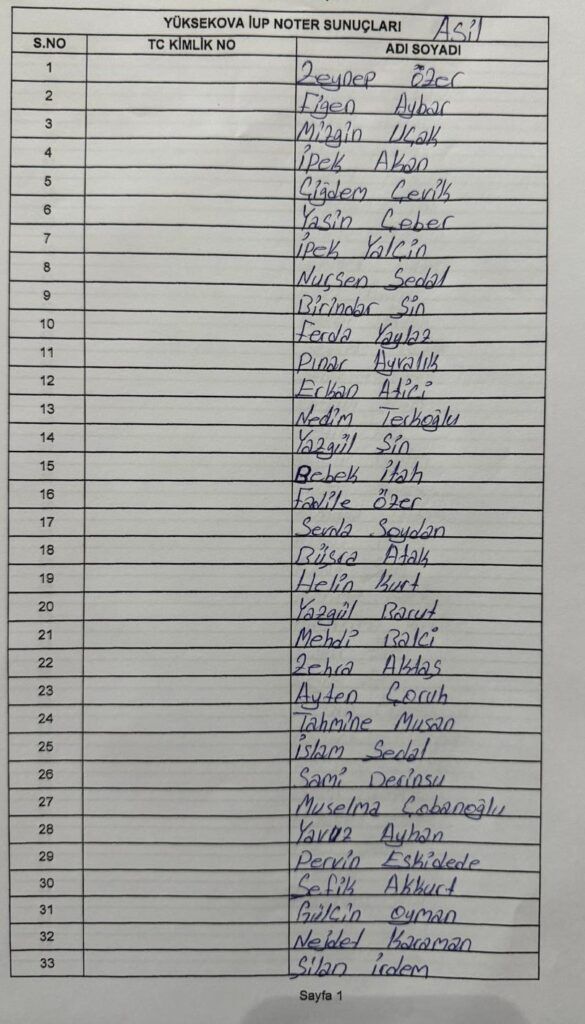 YÜKSEKOVA İUP NOTER SUNUÇLARI Asil
S.NO TC KİMLİK NO ADI SOYADI
1 Zeynep Özer
2 Figen Aybar
3 Mizgin Uçak
4 İpek Akan
5 Çiğdem Çevik
6 Yasin Çeber
7 İpek Yalçin
8 Nurşen Sedal
9 Birindar Şin
10 Ferda Yaylaz
11 Pınar Ayvalık
12 Erkan Atici
13 Nedim Terkoğlu
14 Yazgül Şin
15 Bebek İtah
16 Fadile Özer
17 Serda Soydan
18 Büşra Atak
19 Helin Kurt
20 Yazgül Barut
21 Mehdi Balci
22 Zehra Aktaş
23 Ayten Çoruh
24 Tahmine Musan
25 İslam Sedal
26 Sami Derinsu
27 Muselma Çobanoğlu
28 Yavuz Ayhan
29 Pervin Eskidede
30 Şefik Akkurt
31 Gülçin Oyman
32 Nejdet Karaman
33 Şilan İrdem
Sayfa 1